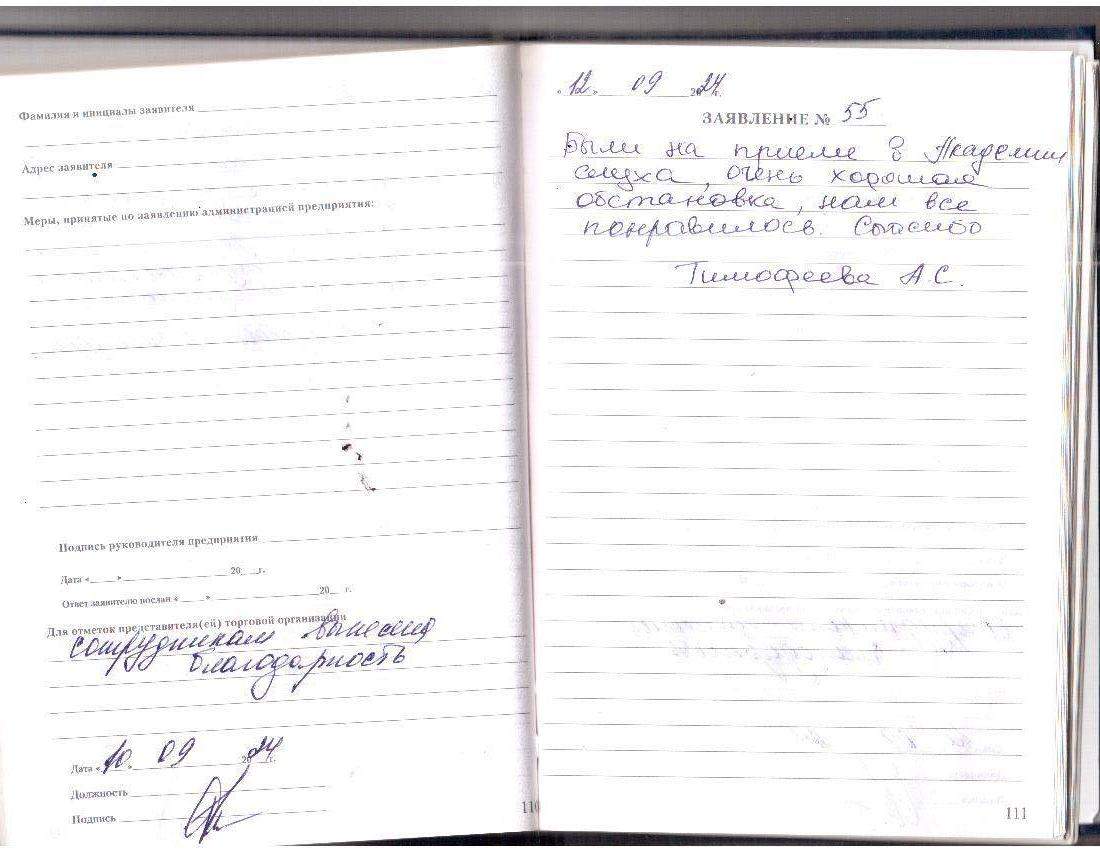 Фамилия и инициалы заявителя
Адрес заявителя
Меры, принятые по заявлению администрацией предприятия:
Подпись руководителя предприятия
Дата «____» ____ 20__ г.
Ответ заявителю послан «____» ____ 20__ г.
Для отметок представителя(ей) торговой организации
сотрудникам вынесена
благодарность
Дата «10» 09 2024г.
Должность
Подпись
110
«12» 09 2024г.
ЗАЯВЛЕНИЕ № 55
Были на приеме в Академии
слуха, очень хорошая
обстановка, нам все
понравилось. Спасибо
Тимофеева А.С.
111